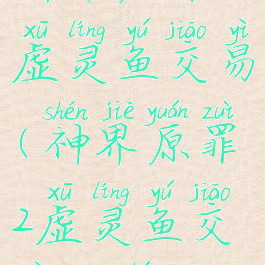 xū líng yú jiāo yì
虚灵鱼交易
shén jiè yuán zuì
(神界原罪
xū líng yú jiāo
2虚灵鱼交